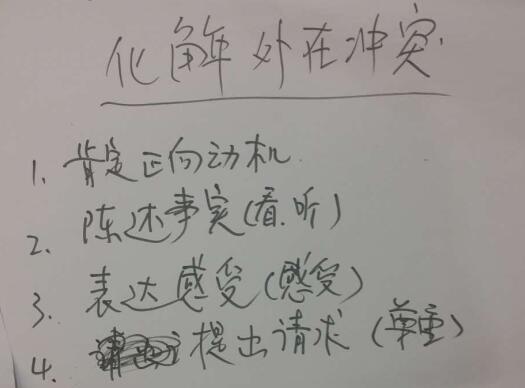 化解外在冲突
1. 肯定正向动机
2、陈述事实(看.听)
3、表达感受(感受)
4、提出请求(尊重)